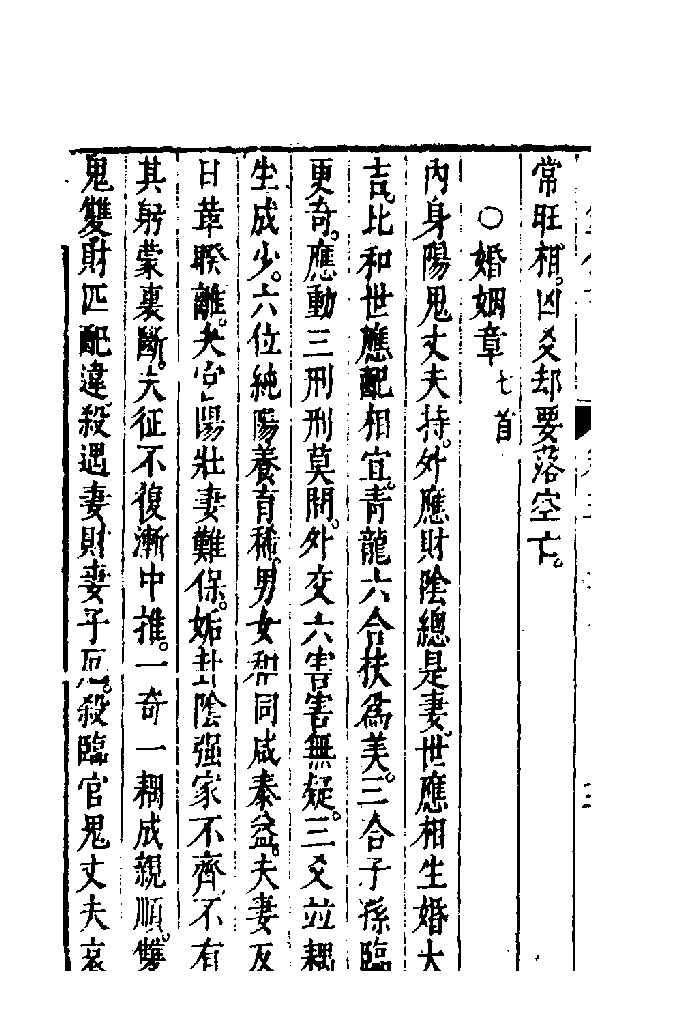 常旺相。凶爻却要落空亡。
○婚姻章七首
內身陽鬼丈夫持。外應財陰總是妻。世應相生婚大
吉。比和世應配相宜。青龍六合扶爲美。三合子孫臨
更奇。應動三刑刑莫問。外交六害害無疑。三爻竝耦
生成少。六位純陽養育稀。男女和同咸泰益。夫妻反
目革睽離。夬宮陽壯妻難保。姤卦陰强家不齊。不有
其躬蒙裏斷。夫征不復漸中推。一奇一耦成親順。雙
鬼雙財匹配違。殺遇妻財妻子厄。殺臨官鬼丈夫哀